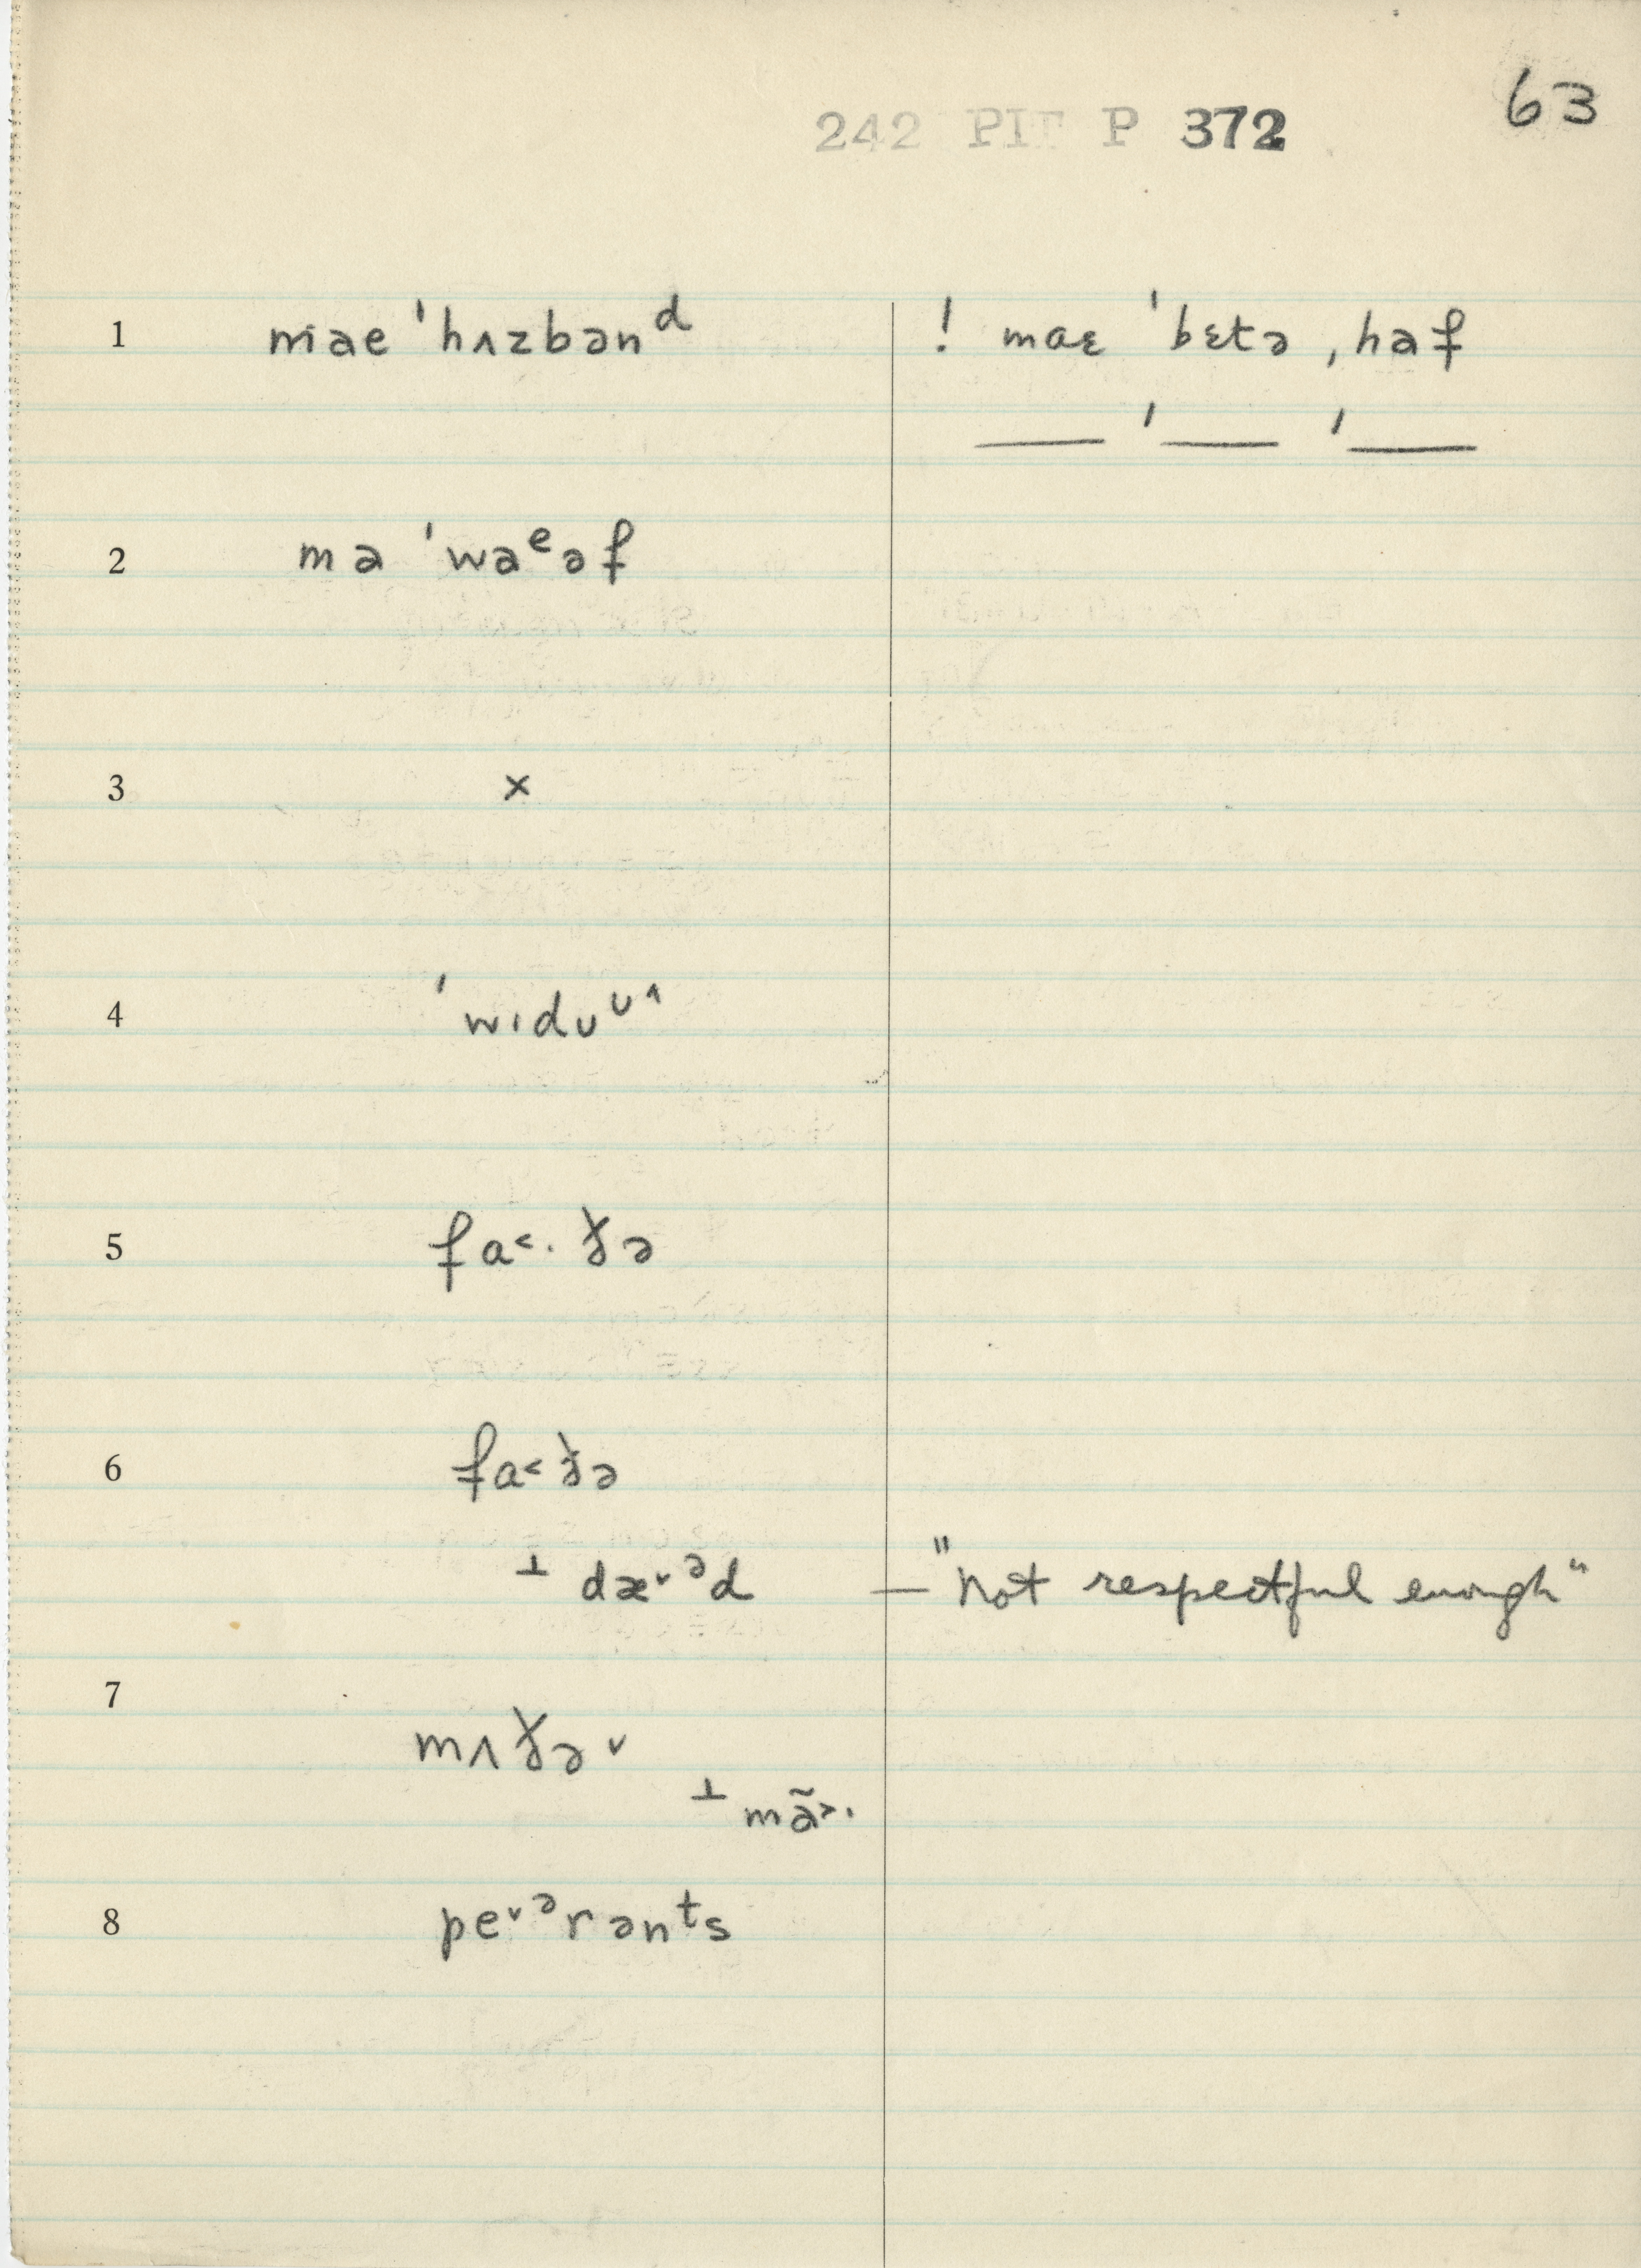 63
242 PIT P 372
1 mae ˈhʌzbənᵈ ! maɛ ˈbɛtə ˌhaf
— ˈ— ˈ—
2 ma ˈwaᵉəf
3 ×
4 ˈwɪdᴜᶸ^
5 fɑ˂· ðə
6 fɑ˂ ðə
⊥ dæ˅ᵊd — "not respectful enough"
7
mʌðə˅
⊥ mã˃·
8 pe˅ᵊrənᵗs